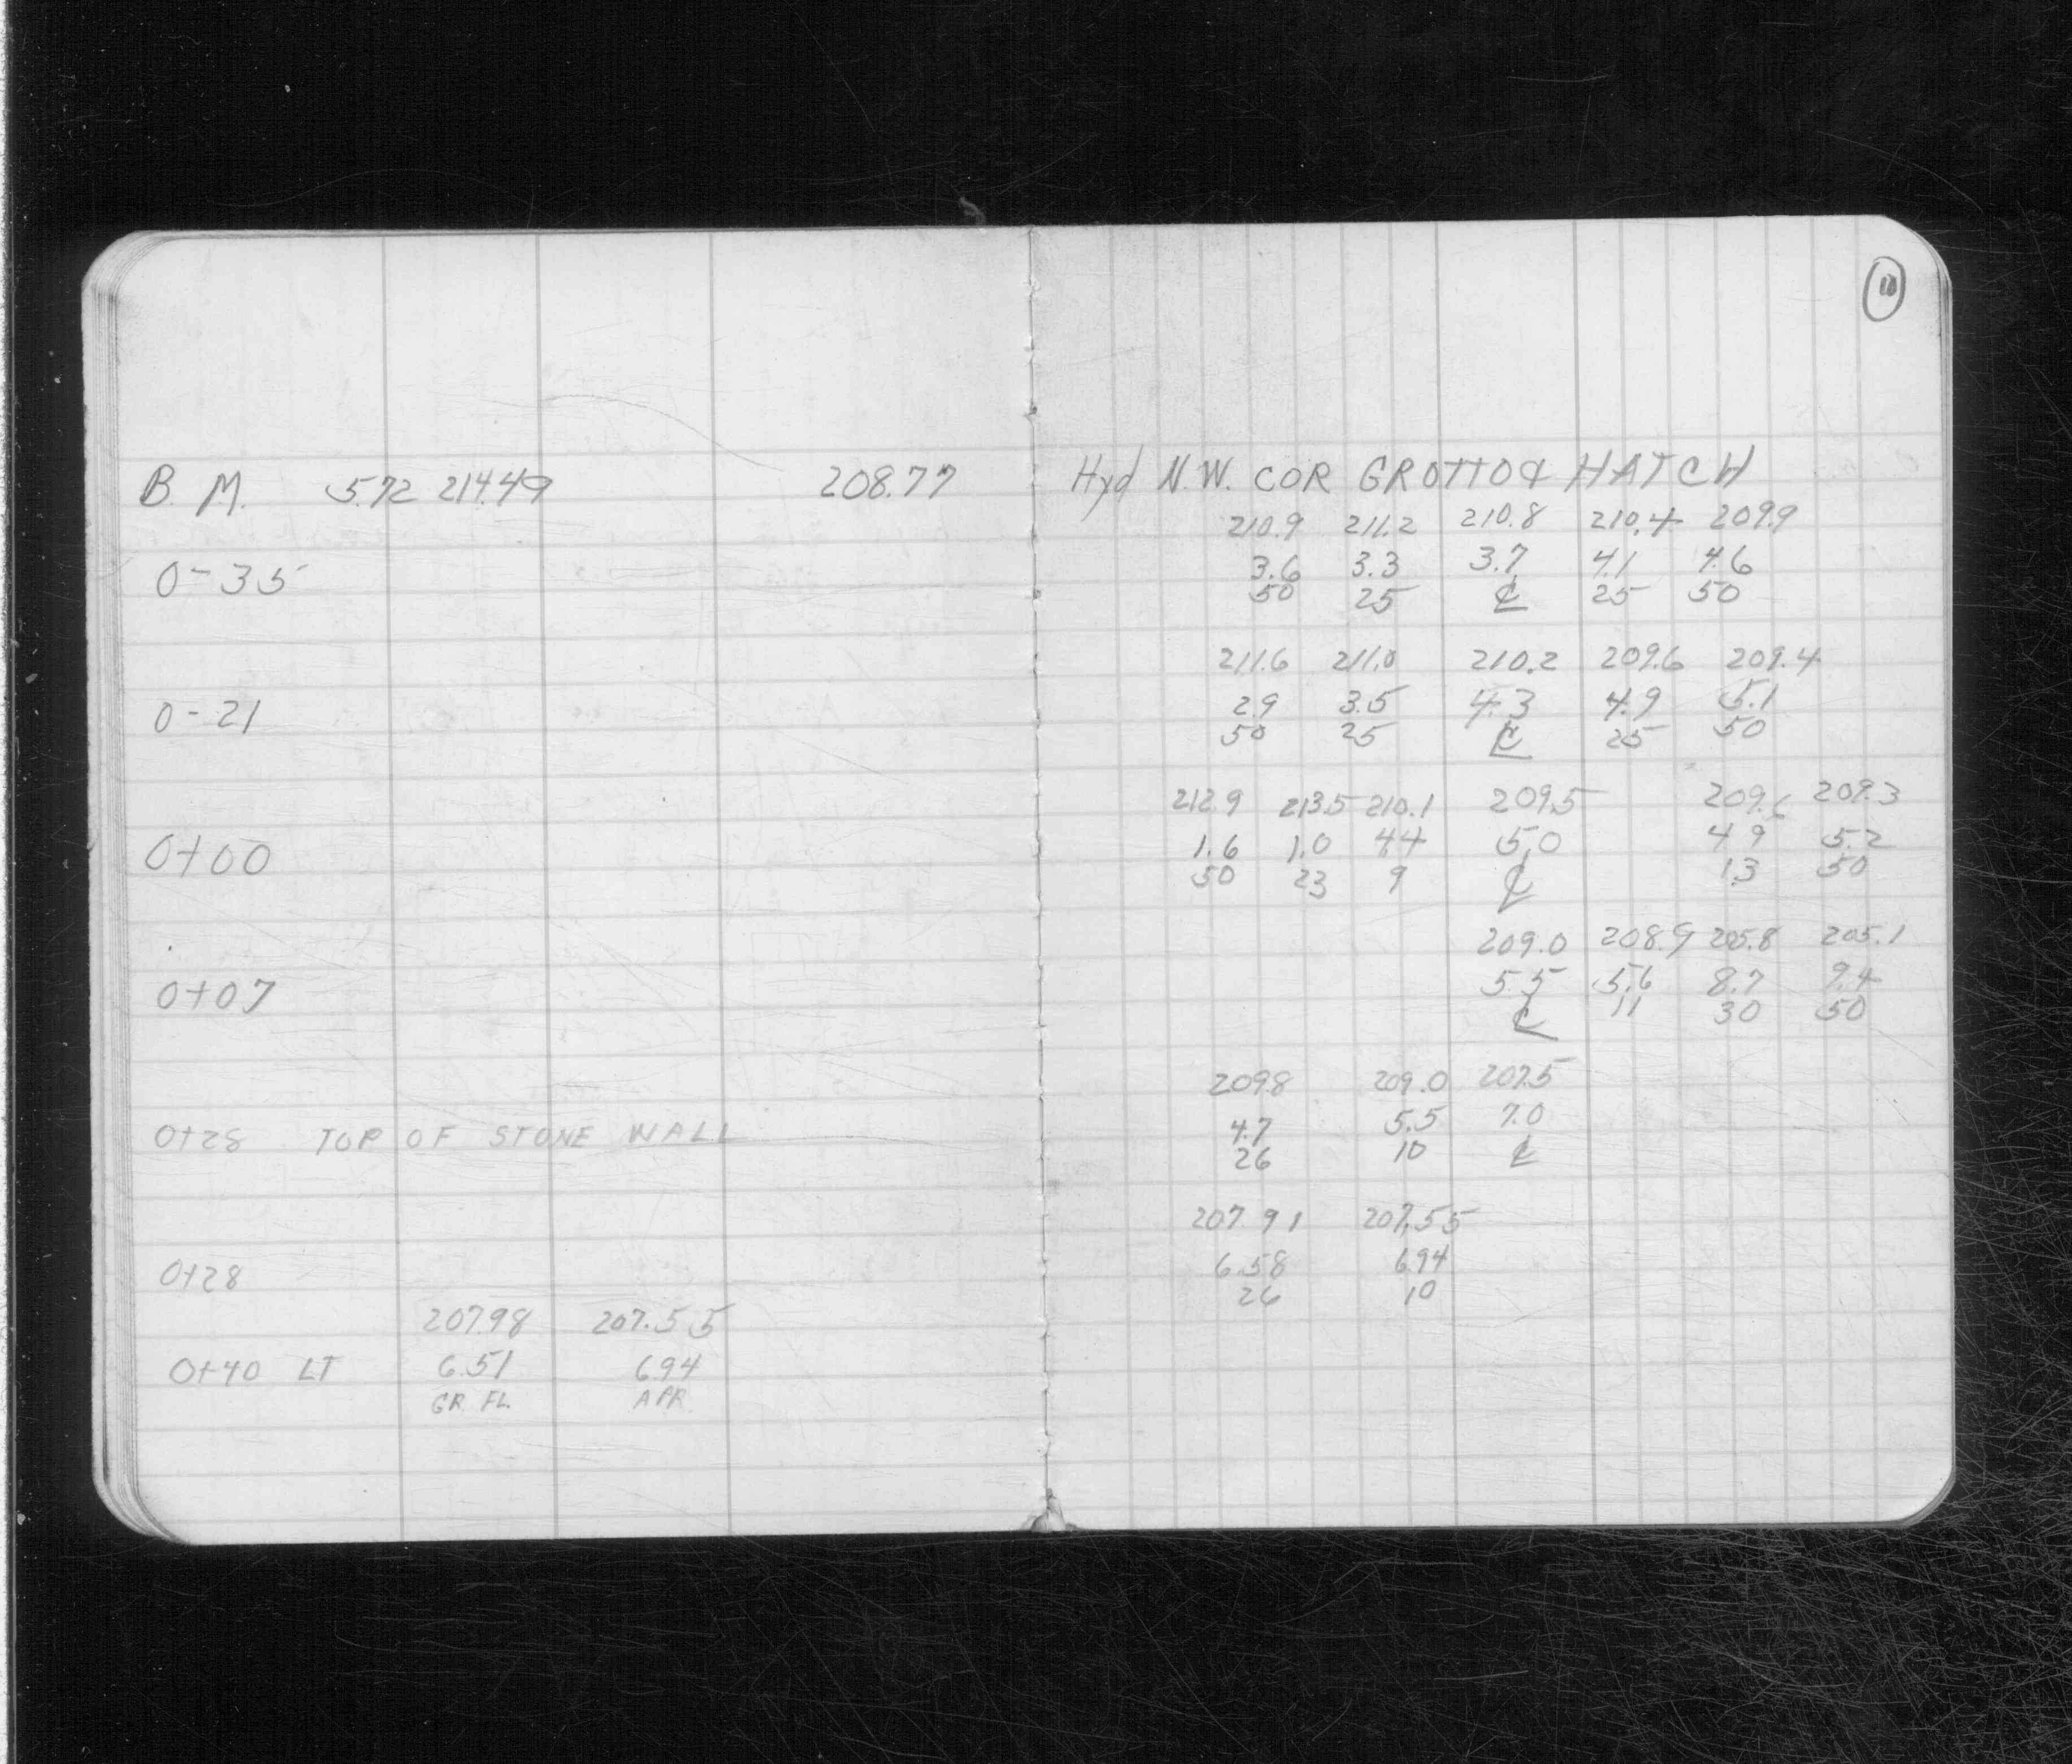 10
B. M. 5.72 214.49 208.77 Hyd N.W. COR GROTTO & HATCH
210.9 211.2 210.8 210.4 209.9
0-35 3.6 3.3 3.7 4.1 4.6
50 25 ℄ 25 50
211.6 211.0 210.2 209.6 209.4
0-21 2.9 3.5 4.3 4.9 5.1
50 25 ℄ 25 50
212.9 213.5 210.1 209.5 209.6 209.3
0+00 1.6 1.0 4.4 5.0 4.9 5.2
50 23 9 ℄ 13 50
209.0 208.9 205.8 205.1
0+07 5.5 5.6 8.7 9.4
℄ 11 30 50
209.8 209.0 207.5
0+28 TOP OF STONE WALL 4.7 5.5 7.0
26 10 ℄
207.91 207.55
0+28 6.58 6.94
26 10
207.98 207.55
0+40 LT 6.51 6.94
GR. FL. APR.